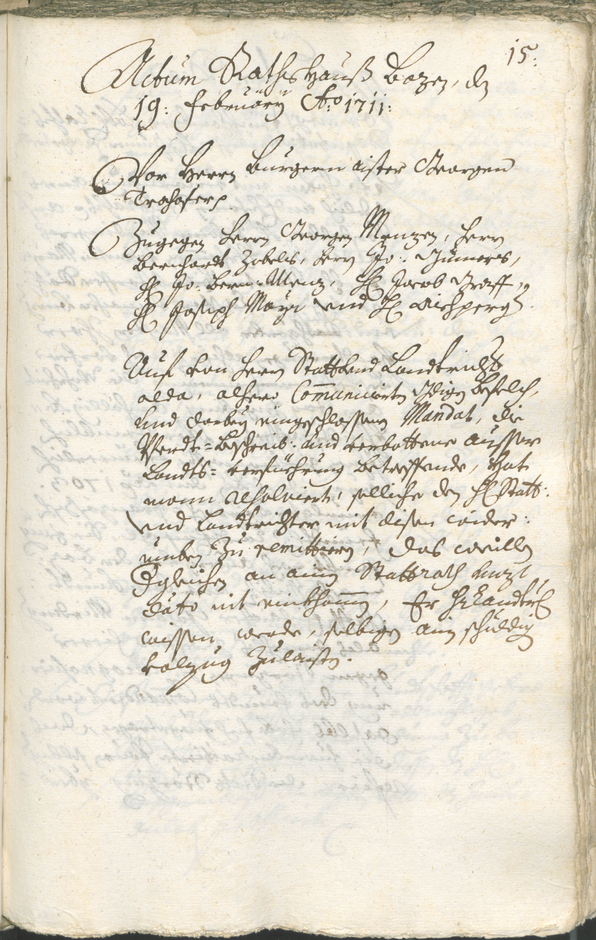 15.
Actum Rathshauß Bozen, dn
19: February Ao. 1711:
Vor Herrn Burgermaister Georgen
Trohofer
Zugegen Herrn Georgen Menzen, Herrn
Bernhardt Zobels, Herrn Jo:
H: Jo: Bern: Menz, H: Jacob Graff,
H: Joseph Mayr und H: Aichperg.
Auf von Herrn Statt und Landtrichter
alda, alhero Communicierten Befelch,
und darbey eingeschlossnen Mandat, die
Pferdt-Beschreib- und verbottene ausser
Landts-verfüehrung betreffendt, hat
mann absolviert, solliche den H: Statt:
und Landtrichter mit disen wider:
umben zu remittieren, das weillen
dgleichen an ainen Stattrath
dato nit einkhommen, Er H: Landtr:
wissen werde, selbigen ain schuldig
volzug zulaisten.